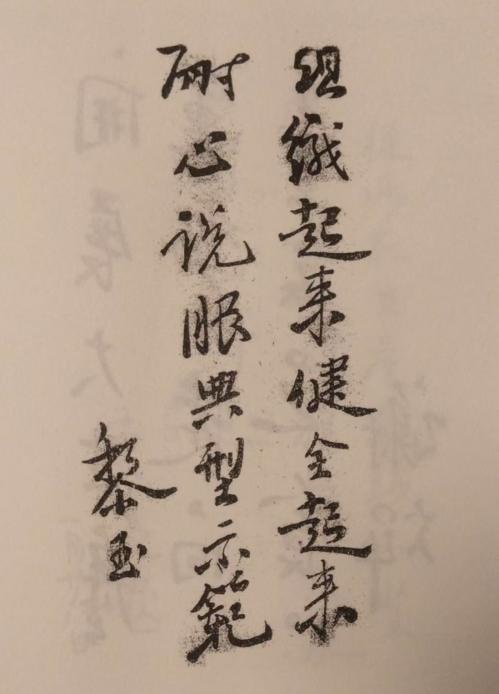 组織起来健全起来
耐心说服典型示範
黎玉